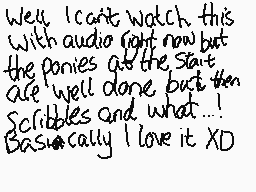 Well I can't watch this
with audio right now but
the ponies at the start
are well done but then
scribbles and what...!
Basically I love it XD